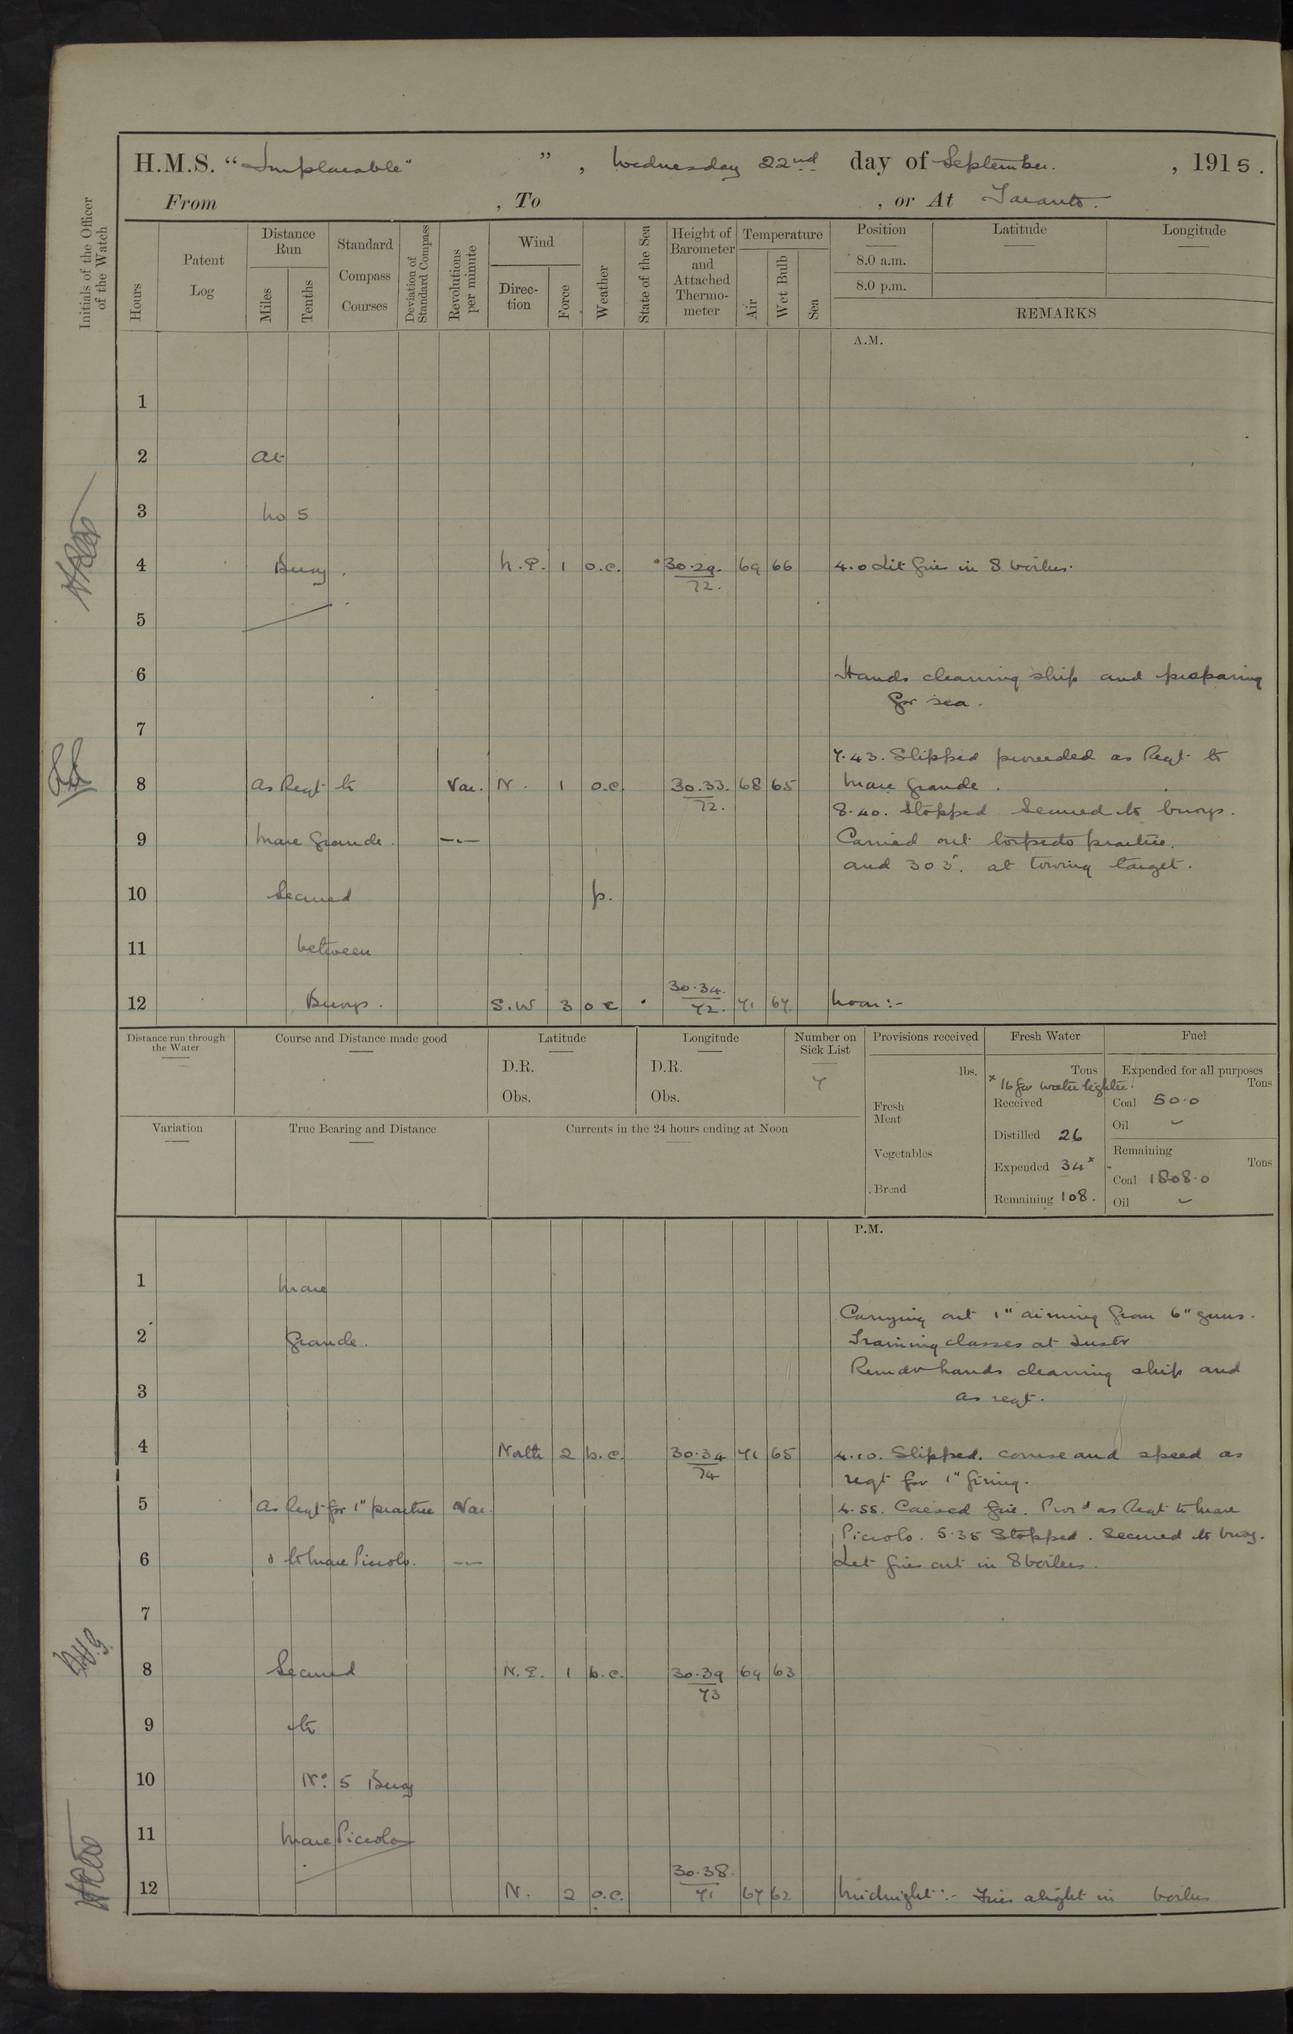 H.M.S. "Implacable" ", Wednesday 22nd day of September. , 1915.
From , To , or At Taranto.
Initials of the Officer of the Watch
Hours
Patent Log
Distance Run
Miles
Tenths
Standard Compass Courses
Deviation of Standard Compass
Revolutions per minute
Wind
Direction
Force
Weather
State of the Sea
Height of Barometer and Attached Thermometer
Temperature
Air
Wet Bulb
Sea
Position
8.0 a.m.
8.0 p.m.
Latitude
Longitude
REMARKS
A.M.
1
2 At
3 No 5
4 Buoy. N.E. 1 o.c. 30.29. 72. 69 66 4.0 Lit fires in 8 boilers.
5
6 Hands cleaning ship and preparing
for sea.
7
7.43. Slipped proceeded as Reqt to
8 As Reqt to Var. N. 1 o.c. 30.33. 72. 68 65 Mare Grande.
8.40. Stopped Secured to buoys.
9 Mare Grande. —— Carried out torpedo practice.
and 303". at towing target.
10 Secured p.
11 between
12 Buoys. S.W 3 o c 30.34. 72. 71 67 Noon:-
Distance run through the Water
Course and Distance made good
Latitude
D.R.
Obs.
Longitude
D.R.
Obs.
Number on Sick List
7
Provisions received
lbs.
Fresh Meat
Vegetables
Bread
Fresh Water
Tons
x 16 for water lighter.
Received
Distilled 26
Expended 34x
Remaining 108.
Fuel
Expended for all purposes
Tons
Coal 50.0
Oil –
Remaining
Tons
Coal 1808.0
Oil –
Variation
True Bearing and Distance
Currents in the 24 hours ending at Noon
P.M.
1 Mare
Carrying out 1" aiming from 6" guns.
2 Grande. Training classes at Instr
Remdr hands cleaning ship and
3 as reqt.
4 North 2 b.c. 30.34 74 71 65 4.10. Slipped. course and speed as
reqt for 1" firing.
5 As Reqt for 1" practice Var. 4.55. Ceased fire. Procd as Reqt to Mare
Piccolo. 5.35 Stopped. Secured to buoy.
6 & to Mare Piccolo. —— Let fires out in 8 boilers.
7
8 Secured N.E. 1 b.c. 30.39 73 69 63
9 to
10 No. 5 Buoy
11 Mare Piccolo
12 N. 2 o.c. 30.38. 71 67 62 Midnight:- Fires alight in boilers